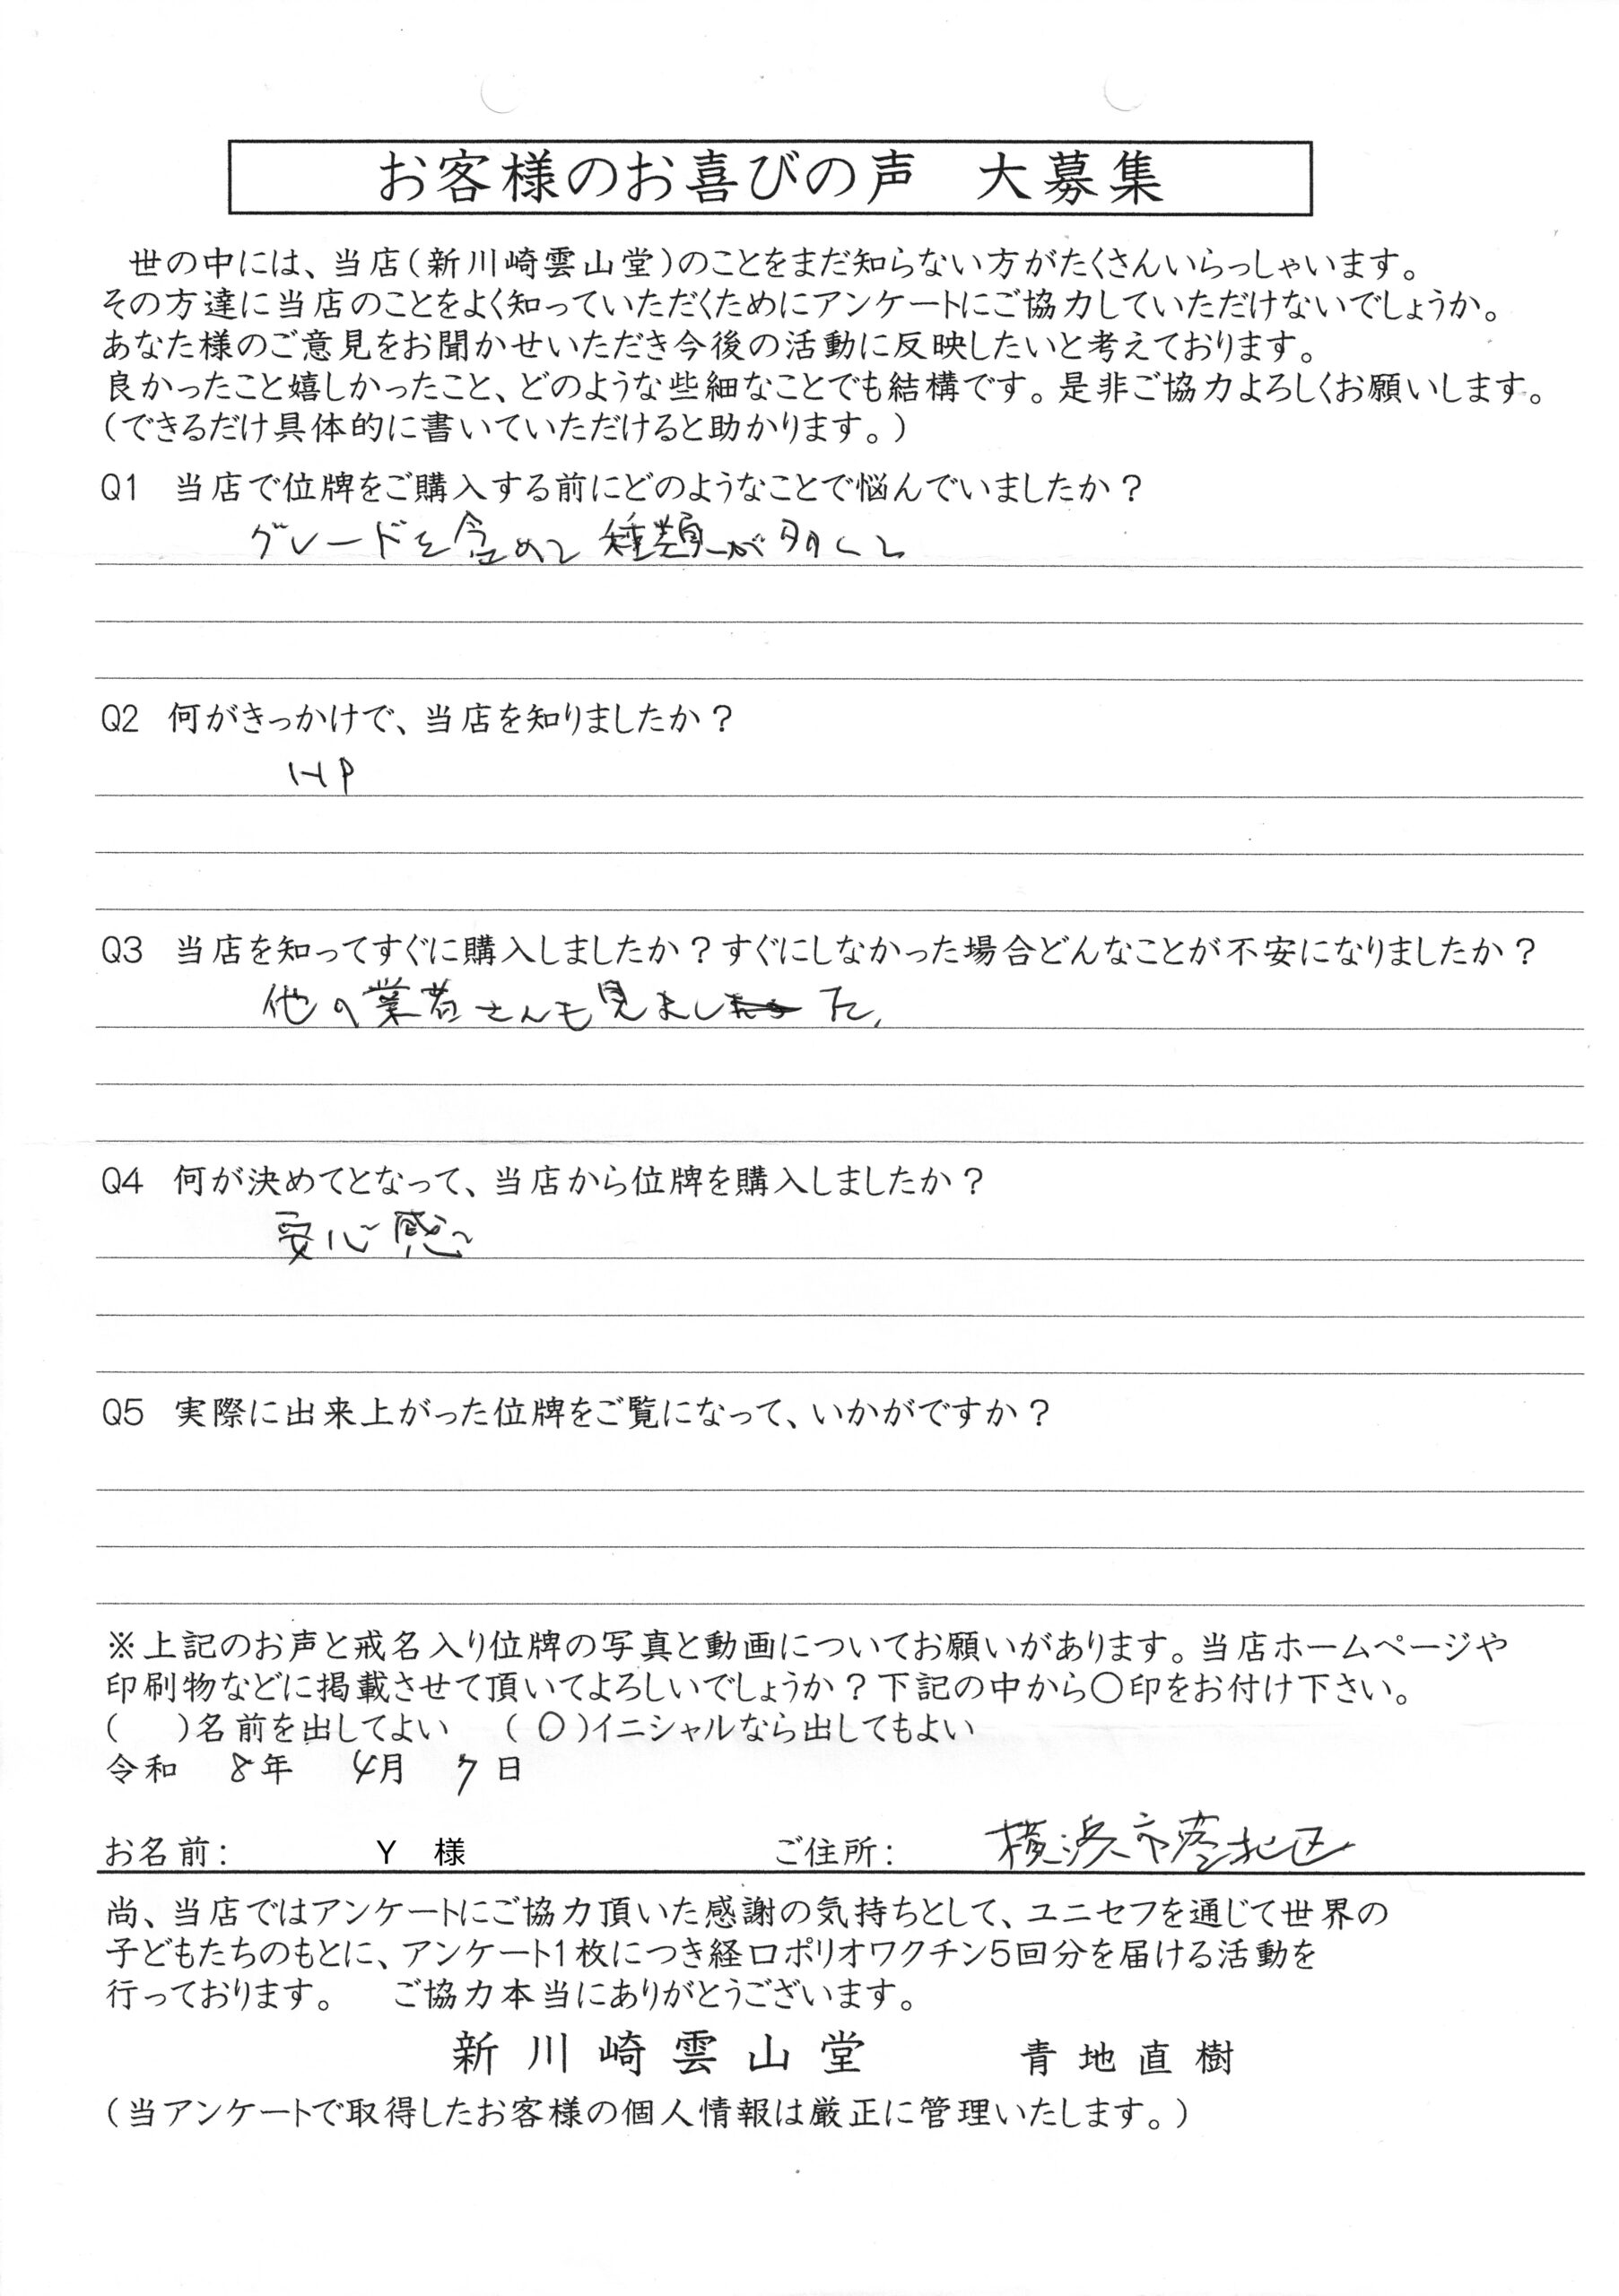 お客様のお喜びの声　大募集
世の中には、当店（新川崎雲山堂）のことをまだ知らない方がたくさんいらっしゃいます。
その方達に当店のことをよく知っていただくためにアンケートにご協力していただけないでしょうか。
あなた様のご意見をお聞かせいただき今後の活動に反映したいと考えております。
良かったこと嬉しかったこと、どのような些細なことでも結構です。是非ご協力よろしくお願いします。
（できるだけ具体的に書いていただけると助かります。）
Q1　当店で位牌をご購入する前にどのようなことで悩んでいましたか？
グレードを含めて種類が多くて
Q2　何がきっかけで、当店を知りましたか？
HP
Q3　当店を知ってすぐに購入しましたか？すぐにしなかった場合どんなことが不安になりましたか？
他の業者さんも見ました。
Q4　何が決めてとなって、当店から位牌を購入しましたか？
安心感
Q5　実際に出来上がった位牌をご覧になって、いかがですか？
※上記のお声と戒名入り位牌の写真と動画についてお願いがあります。当店ホームページや
印刷物などに掲載させて頂いてよろしいでしょうか？下記の中から〇印をお付け下さい。
（　　）名前を出してよい　（ 〇 ）イニシャルなら出してもよい
令和　8年　4月　7日
お名前：　Y　様　ご住所：　横浜市港北区
尚、当店ではアンケートにご協力頂いた感謝の気持ちとして、ユニセフを通じて世界の
子どもたちのもとに、アンケート1枚につき経口ポリオワクチン5回分を届ける活動を
行っております。　ご協力本当にありがとうございます。
新川崎雲山堂　青地直樹
（当アンケートで取得したお客様の個人情報は厳正に管理いたします。）